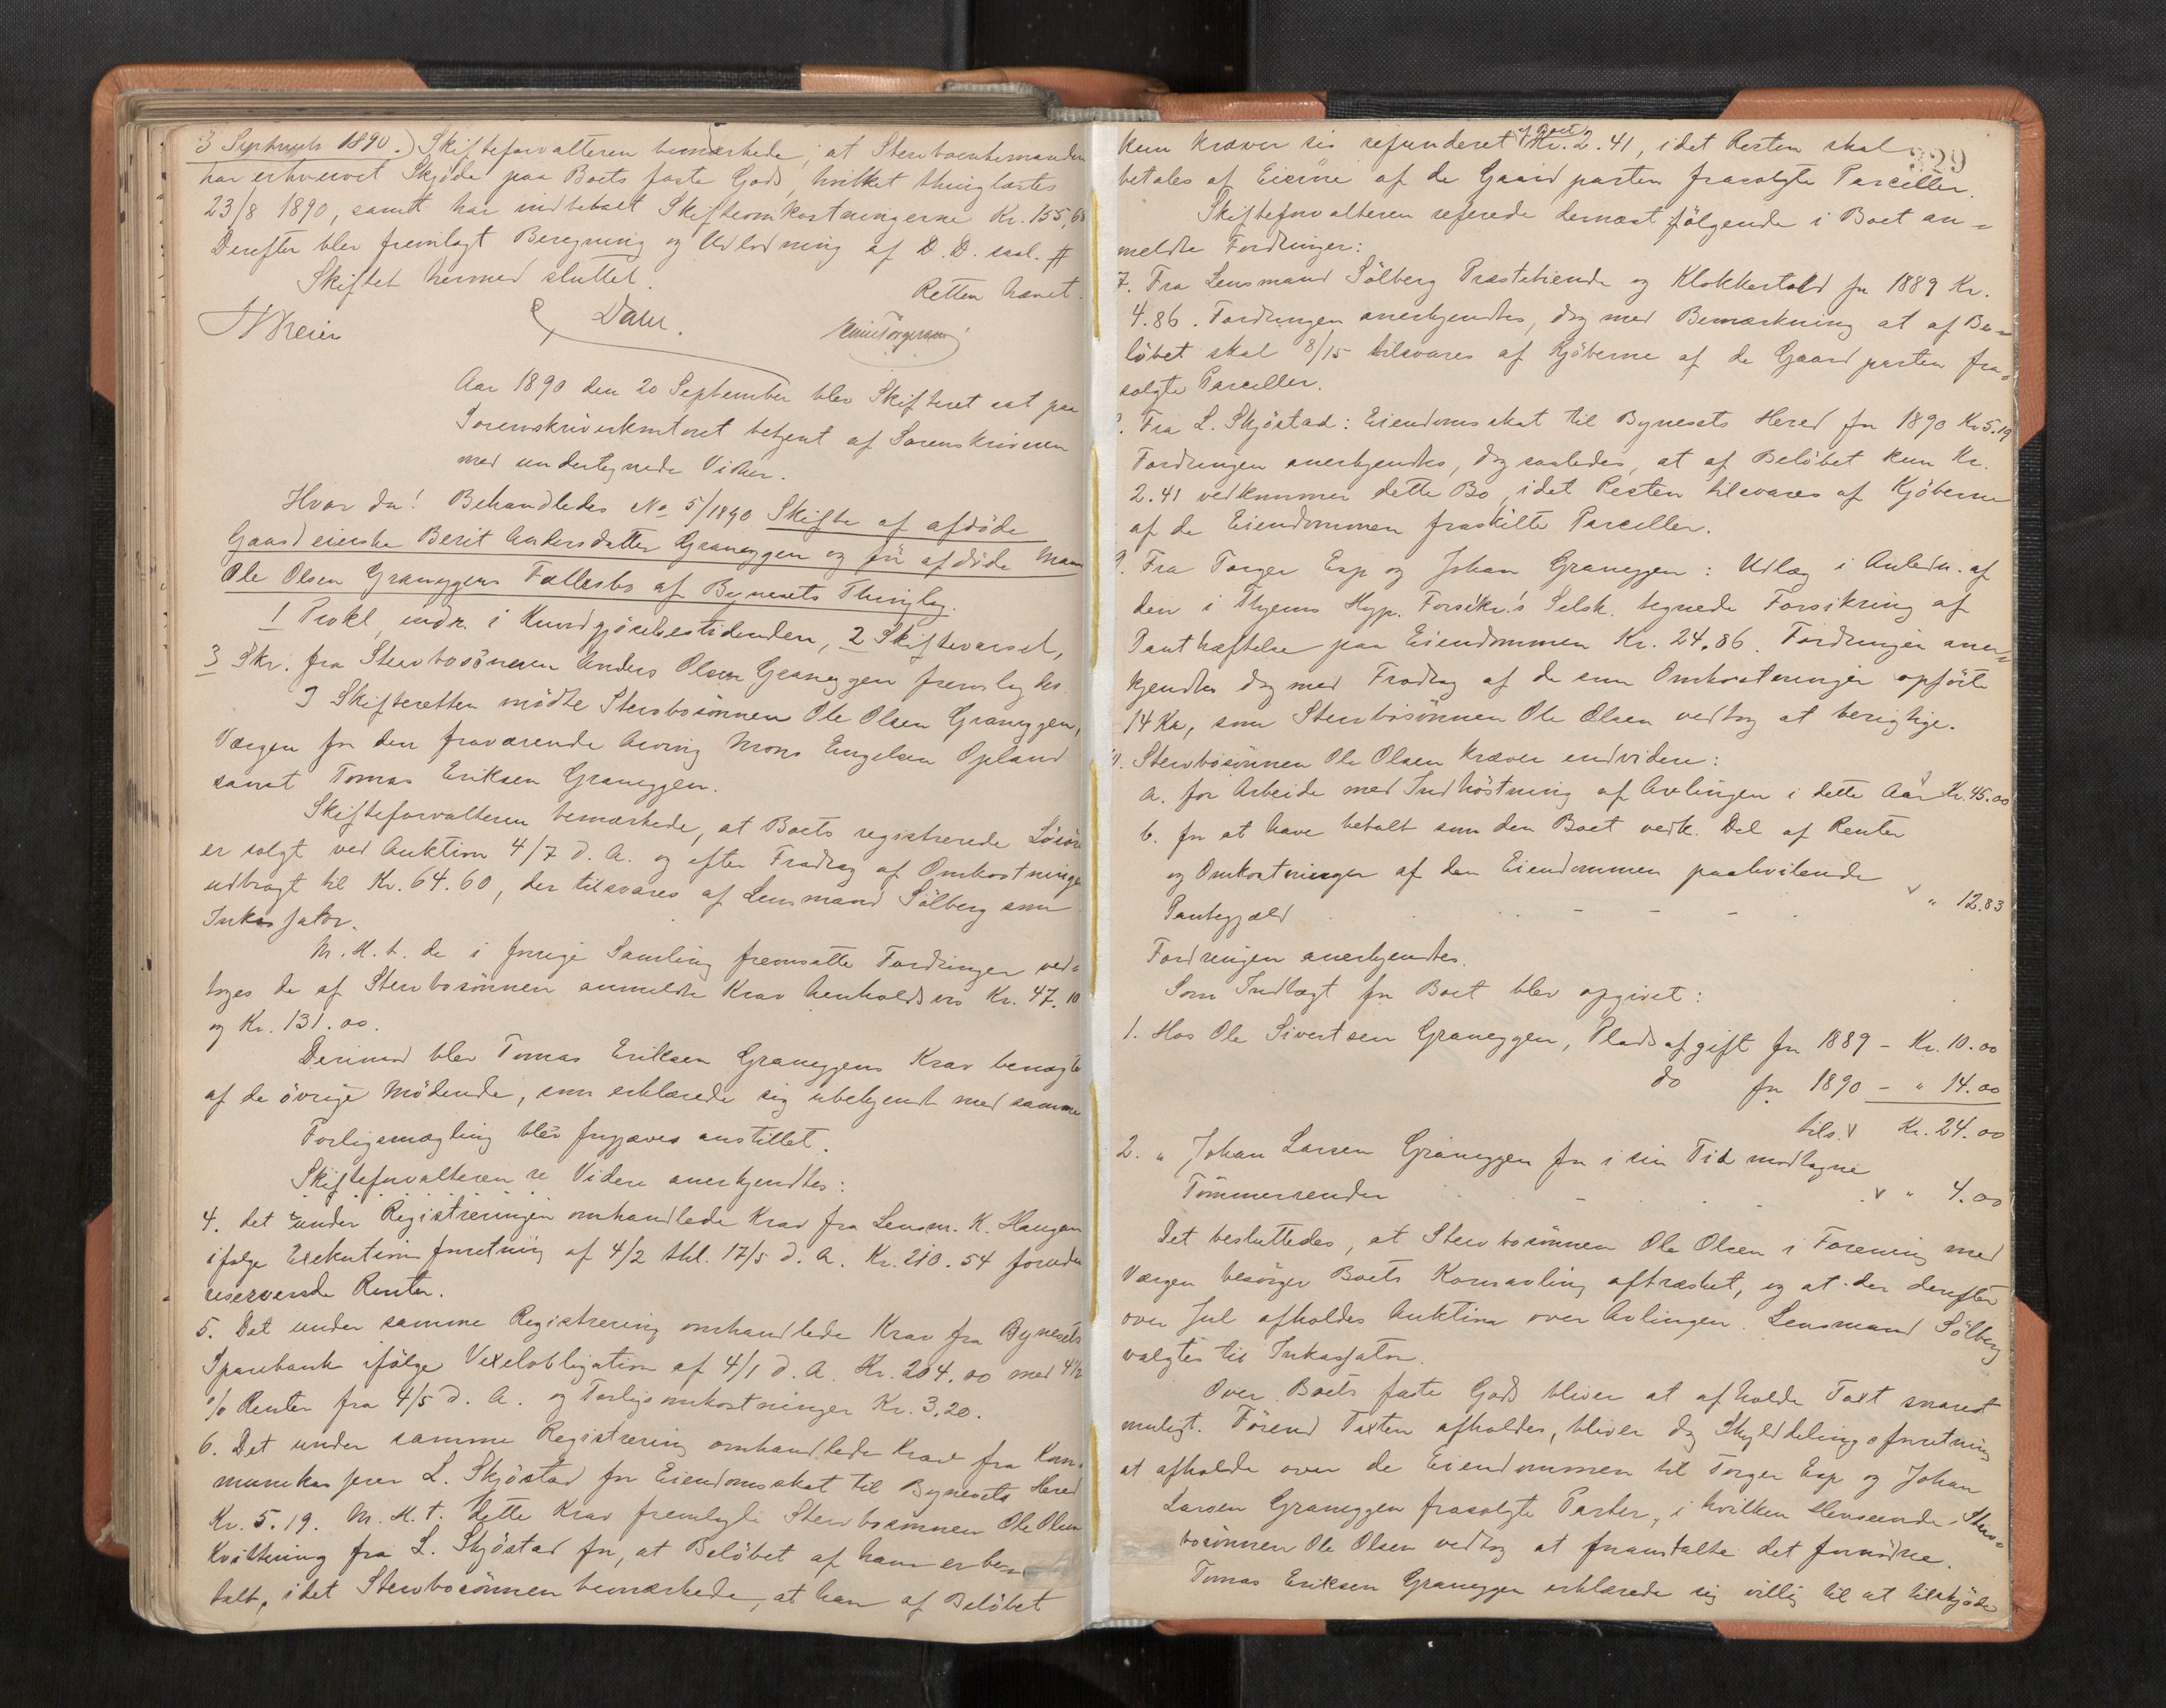 3 Septemb 1890.) Skifteforvalteren bemærkede, at Stervboenkemanden
har erhvervet Skjøde paa Boets faste Gods hvilket thinglæstes
23/8 1890, samt har indbetalt Skifteomkostningerne Kr. 155,68
Derefter blev fremlagt Beregning og Udlodning af D. D. saal. #
Skiftet hermed sluttet.
Retten hævet.
Dahl.
Aar 1890 den 20 September blev Skifteret sat paa
Sorenskriverkontoret betjent af Sorenskriveren
med undertegnede Vidner.
Hvor da! Behandledes No 5/1890 Skifte af afdøde
Gaardeierske Berit Andersdatter Graneggen og før afdøde Mand
Ole Olsen Graneggens Fællesbo af Bynesets Thinglag.
1 Prokl. indr. i Kundgjørelsestidenden, 2 Skiftevarsel,
3 Skr. fra Stervbosønnen Anders Olsen Graneggen fremlagdes.
I Skifteretten mødte Stervbosønnen Ole Olsen Graneggen,
Værgen for den fraværende Arving Mons Engelsen Opland
samt Tomas Eriksen Graneggen.
Skifteforvalteren bemærkede, at Boets registrerede Løsøre
er solgt ved Auktion 4/7 d. A. og efter Fradrag af Omkostninger
udbragt til Kr. 64.60, der tilsvares af Lensmand Sölberg som
Inkassator.
M. H. t. de i forrige Samling fremsatte Fordringer ved-
toges de af Stervbosønnen anmeldte Krav henholdsvis Kr. 47.10
og Kr. 131.00.
Derimod blev Tomas Eriksen Graneggens Krav benægtet
af de øvrige Mødende, som erklærede sig ubekjendt med samme
Forligsmægling blev forgjæves anstillet.
Skifteforvalteren re Videre anerkjendtes:
4. det under Registreringen omhandlede Krav fra Lensm. K. Haugan
ifølge Exekutionsforretning af 4/2 thl. 17/5 d. A. Kr. 210.54 foruden
reserverede Renter.
5. Det under samme Registrering omhandlede Krav fra Bynesets
Sparebank ifølge Vexelobligation af 4/1 d. A. Kr. 204.00 med 4½
% Renter fra 4/5 d. A. og Forligsomkostninger Kr. 3.20.
6. Det under samme Registrering omhandlede Krav fra Kom-
munekasserer L. Skjöstad for Eiendomsskat til Bynesets Hered
Kr. 5.19. M. H. t. dette Krav fremlagde Stervbosønnen Ole Olsen
Kvittering fra L. Skjöstad for, at Beløbet af ham er be-
talt, idet Stervbosønnen bemærkede, at han af Beløbet
329
kun kræver sig refunderet af Boet Kr. 2.41, idet Resten skal
betales af Eierne af de Gaardparten frasolgte Parceller.
Skifteforvalteren referede dernæst følgende i Boet an-
meldte Fordringer:
7. Fra Lensmand Sölberg Præstetiende og Klokkertold for 1889 Kr.
4.86. Fordringen anerkjendtes, dog med Bemærkning at af Be-
løbet skal 8/15 tilsvares af Kjøberne af de Gaardparten fra-
solgte Parceller.
Fra L. Skjöstad: Eiendomsskat til Bynesets Hered for 1890 Kr 5.19
Fordringen anerkjendtes, dog saaledes, at af Beløbet kun Kr.
2.41 vedkommer dette Bo, idet Resten tilsvares af Kjøberne
af de Eiendommen fraskilte Parceller.
9. Fra Torger Esp og Johan Graneggen: Udlæg i Anledn. af
den i Thjems Hyp. Forsikr.s Selsk. tegnede Forsikring af
Panthæftelse paa Eiendommen Kr. 24.86. Fordringen aner-
kjendtes dog med Fradrag af de som Omkostninger opførte
14 Kr, som Stervbosønnen Ole Olsen vedtog at berigtige.
Stervbosønnen Ole Olsen kræver endvidere:
a. for Arbeide med Indhøstning af Avlingen i dette Aar Kr. 45.00
b. for at have betalt som den Boet vedk. Del af Renter
og Omkostninger af den Eiendommen paahvilende
Pantegjæld . . . . - - - . " 12.83
Fordringen anerkjendtes.
Som Indtægt for Boet blev opgivet:
1. Hos Ole Sivertsen Graneggen, Pladsafgift for 1889 - Kr. 10.00
do for 1890 - " 14.00
tils. Kr. 24.00
2. " Johan Larsen Graneggen for i sin Tid modtagne
Tømmerrender . . - . . " 4.00
Det besluttedes, at Stervbosønnen Ole Olsen i Forening med
Værgen besørger Boets Kornavling aftræsket, og at der derefter
over Jul afholdes Auktion over Avlingen. Lensmand Sölberg
valgtes til Inkassator.
Over Boets faste Gods bliver at afholde Taxt snarest
muligt. Førend Taxten afholdes, bliver dog Skylddelingsforretning
at afholde over de Eiendommen til Torger Esp og Johan
Larsen Graneggen frasolgte Parter, i hvilken Henseende Sterv-
bosønnen Ole Olsen vedtog at foranstalte det fornødne.
Tomas Eriksen Graneggen erklærede sig villig til at tilskjøde